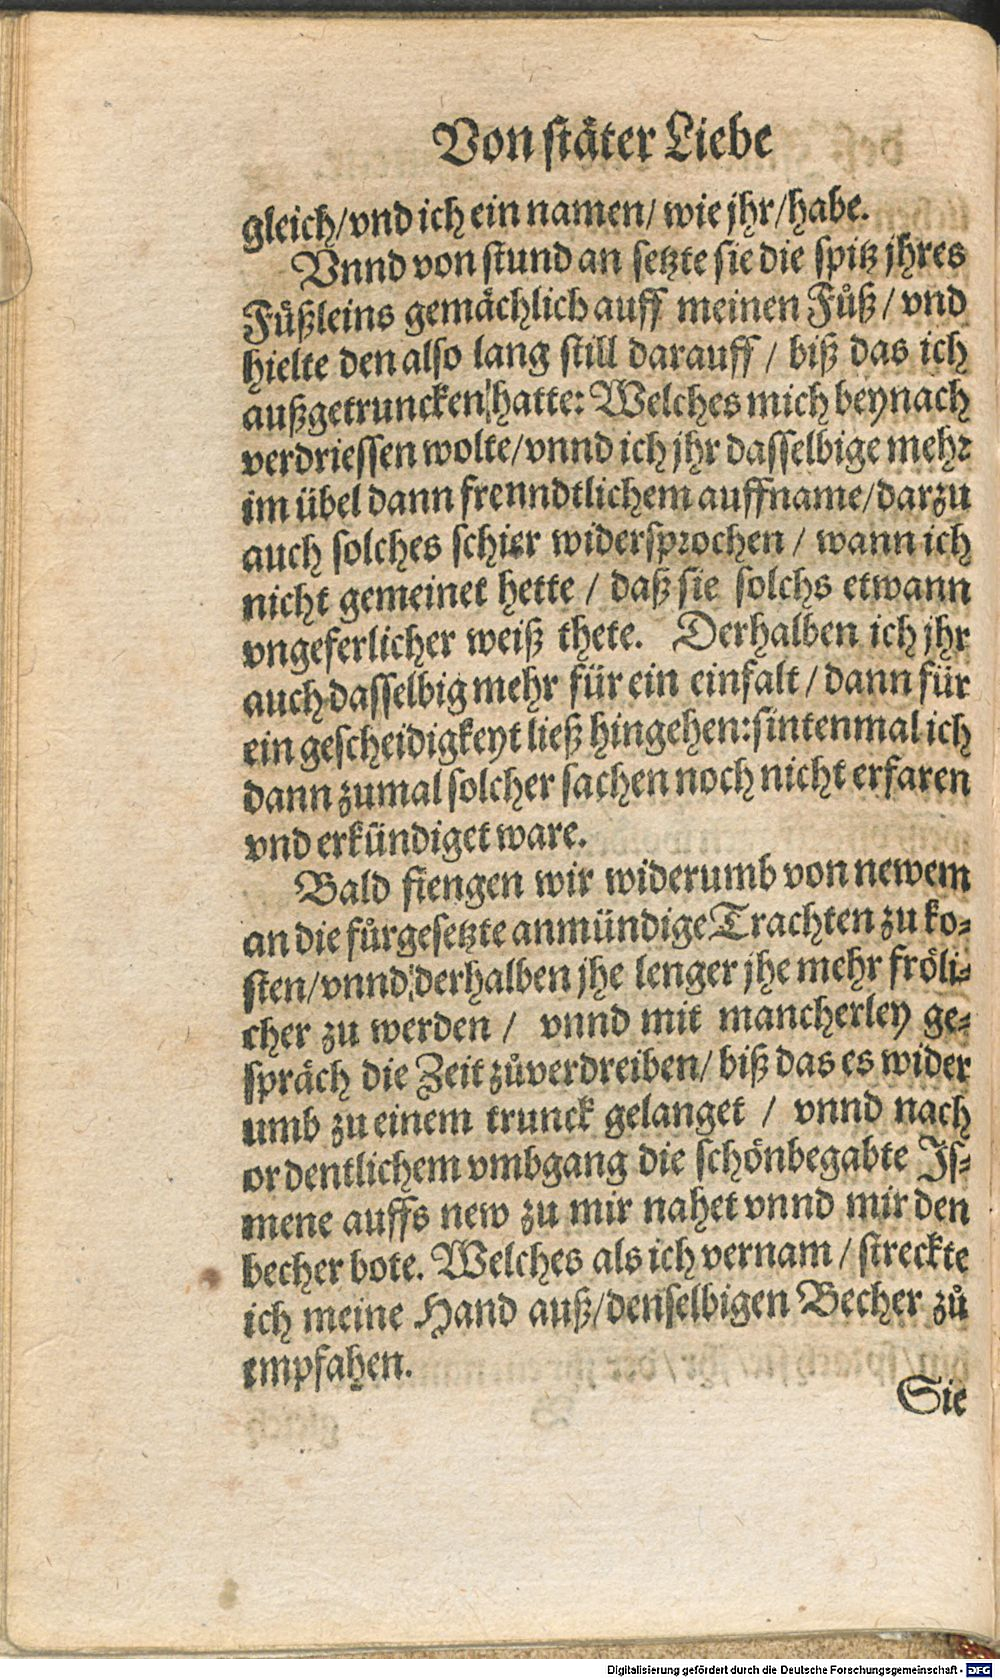 Von stäter Liebe
gleich/vnd ich ein namen/ wie jhr/habe.
Vnnd von stund an setzte sie die spitz jhres
Fůßleins gemächlich auff meinen Fůß/ vnd
hielte den also lang still darauff / biß das ich
außgetruncken hatte: Welches mich beynach
verdriessen wolte/vnnd ich jhr dasselbige mehr
im übel dann frenndtlichem auffname/darzu
auch solches schier widersprochen / wann ich
nicht gemeinet hette / daß sie solchs etwann
vngeferlicher weiß thete. Derhalben ich jhr
auch dasselbig mehr für ein einfalt / dann für
ein gescheidigkeyt ließ hingehen:sintenmal ich
dann zumal solcher sachen noch nicht erfaren
vnd erkündiget ware.
Bald fiengen wir widerumb von newem
an die fürgesetzte anmündige Trachten zu ko⸗
sten/vnnd derhalben jhe lenger jhe mehr fröli⸗
cher zu werden / vnnd mit mancherley ge⸗
spräch die Zeit zůverdreiben/ biß das es wider
umb zu einem trunck gelanget / vnnd nach
ordentlichem vmbgang die schönbegabte Js⸗
mene auffs new zu mir nahet vnnd mir den
becher bote. Welches als ich vernam / streckte
ich meine Hand auß/denselbigen Becher zů
empfahen.
Sie
Digitalisierung gefördert durch die Deutsche Forschungsgemeinschaft - DFG